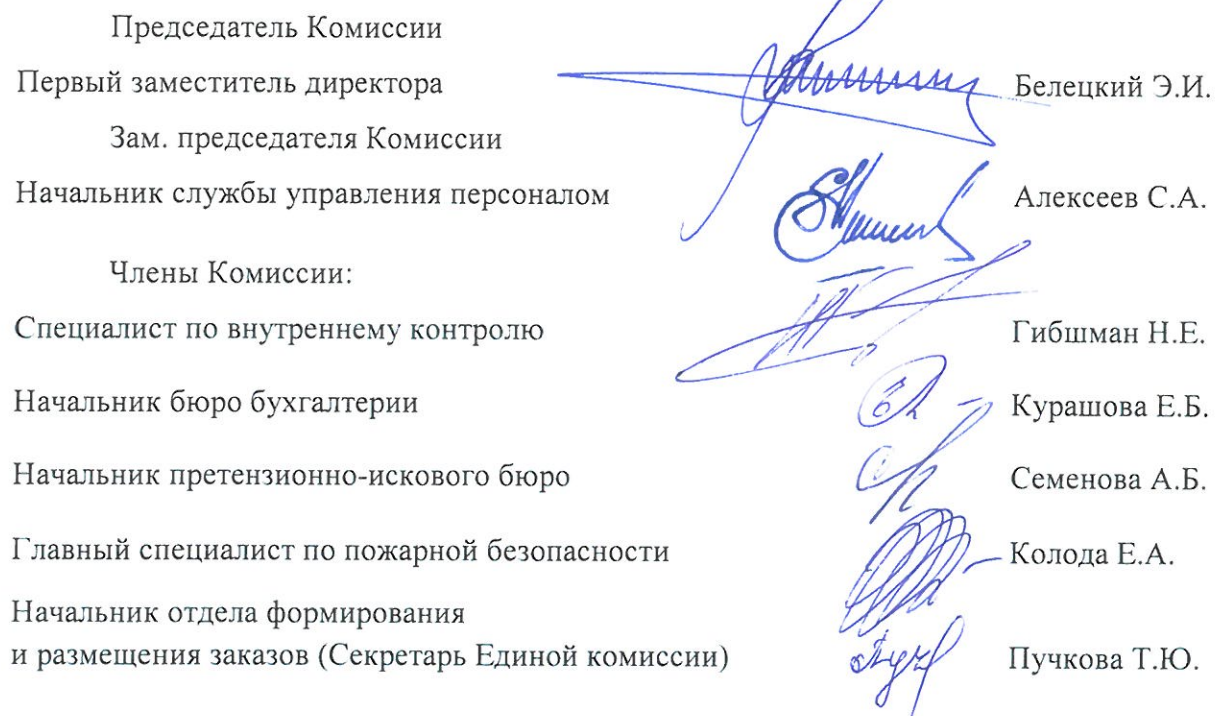 Председатель Комиссии
Первый заместитель директора Белецкий Э.И.
Зам. председателя Комиссии
Начальник службы управления персоналом Алексеев С.А.
Члены Комиссии:
Специалист по внутреннему контролю Гибшман Н.Е.
Начальник бюро бухгалтерии Курашова Е.Б.
Начальник претензионно-искового бюро Семенова А.Б.
Главный специалист по пожарной безопасности Колода Е.А.
Начальник отдела формирования
и размещения заказов (Секретарь Единой комиссии) Пучкова Т.Ю.